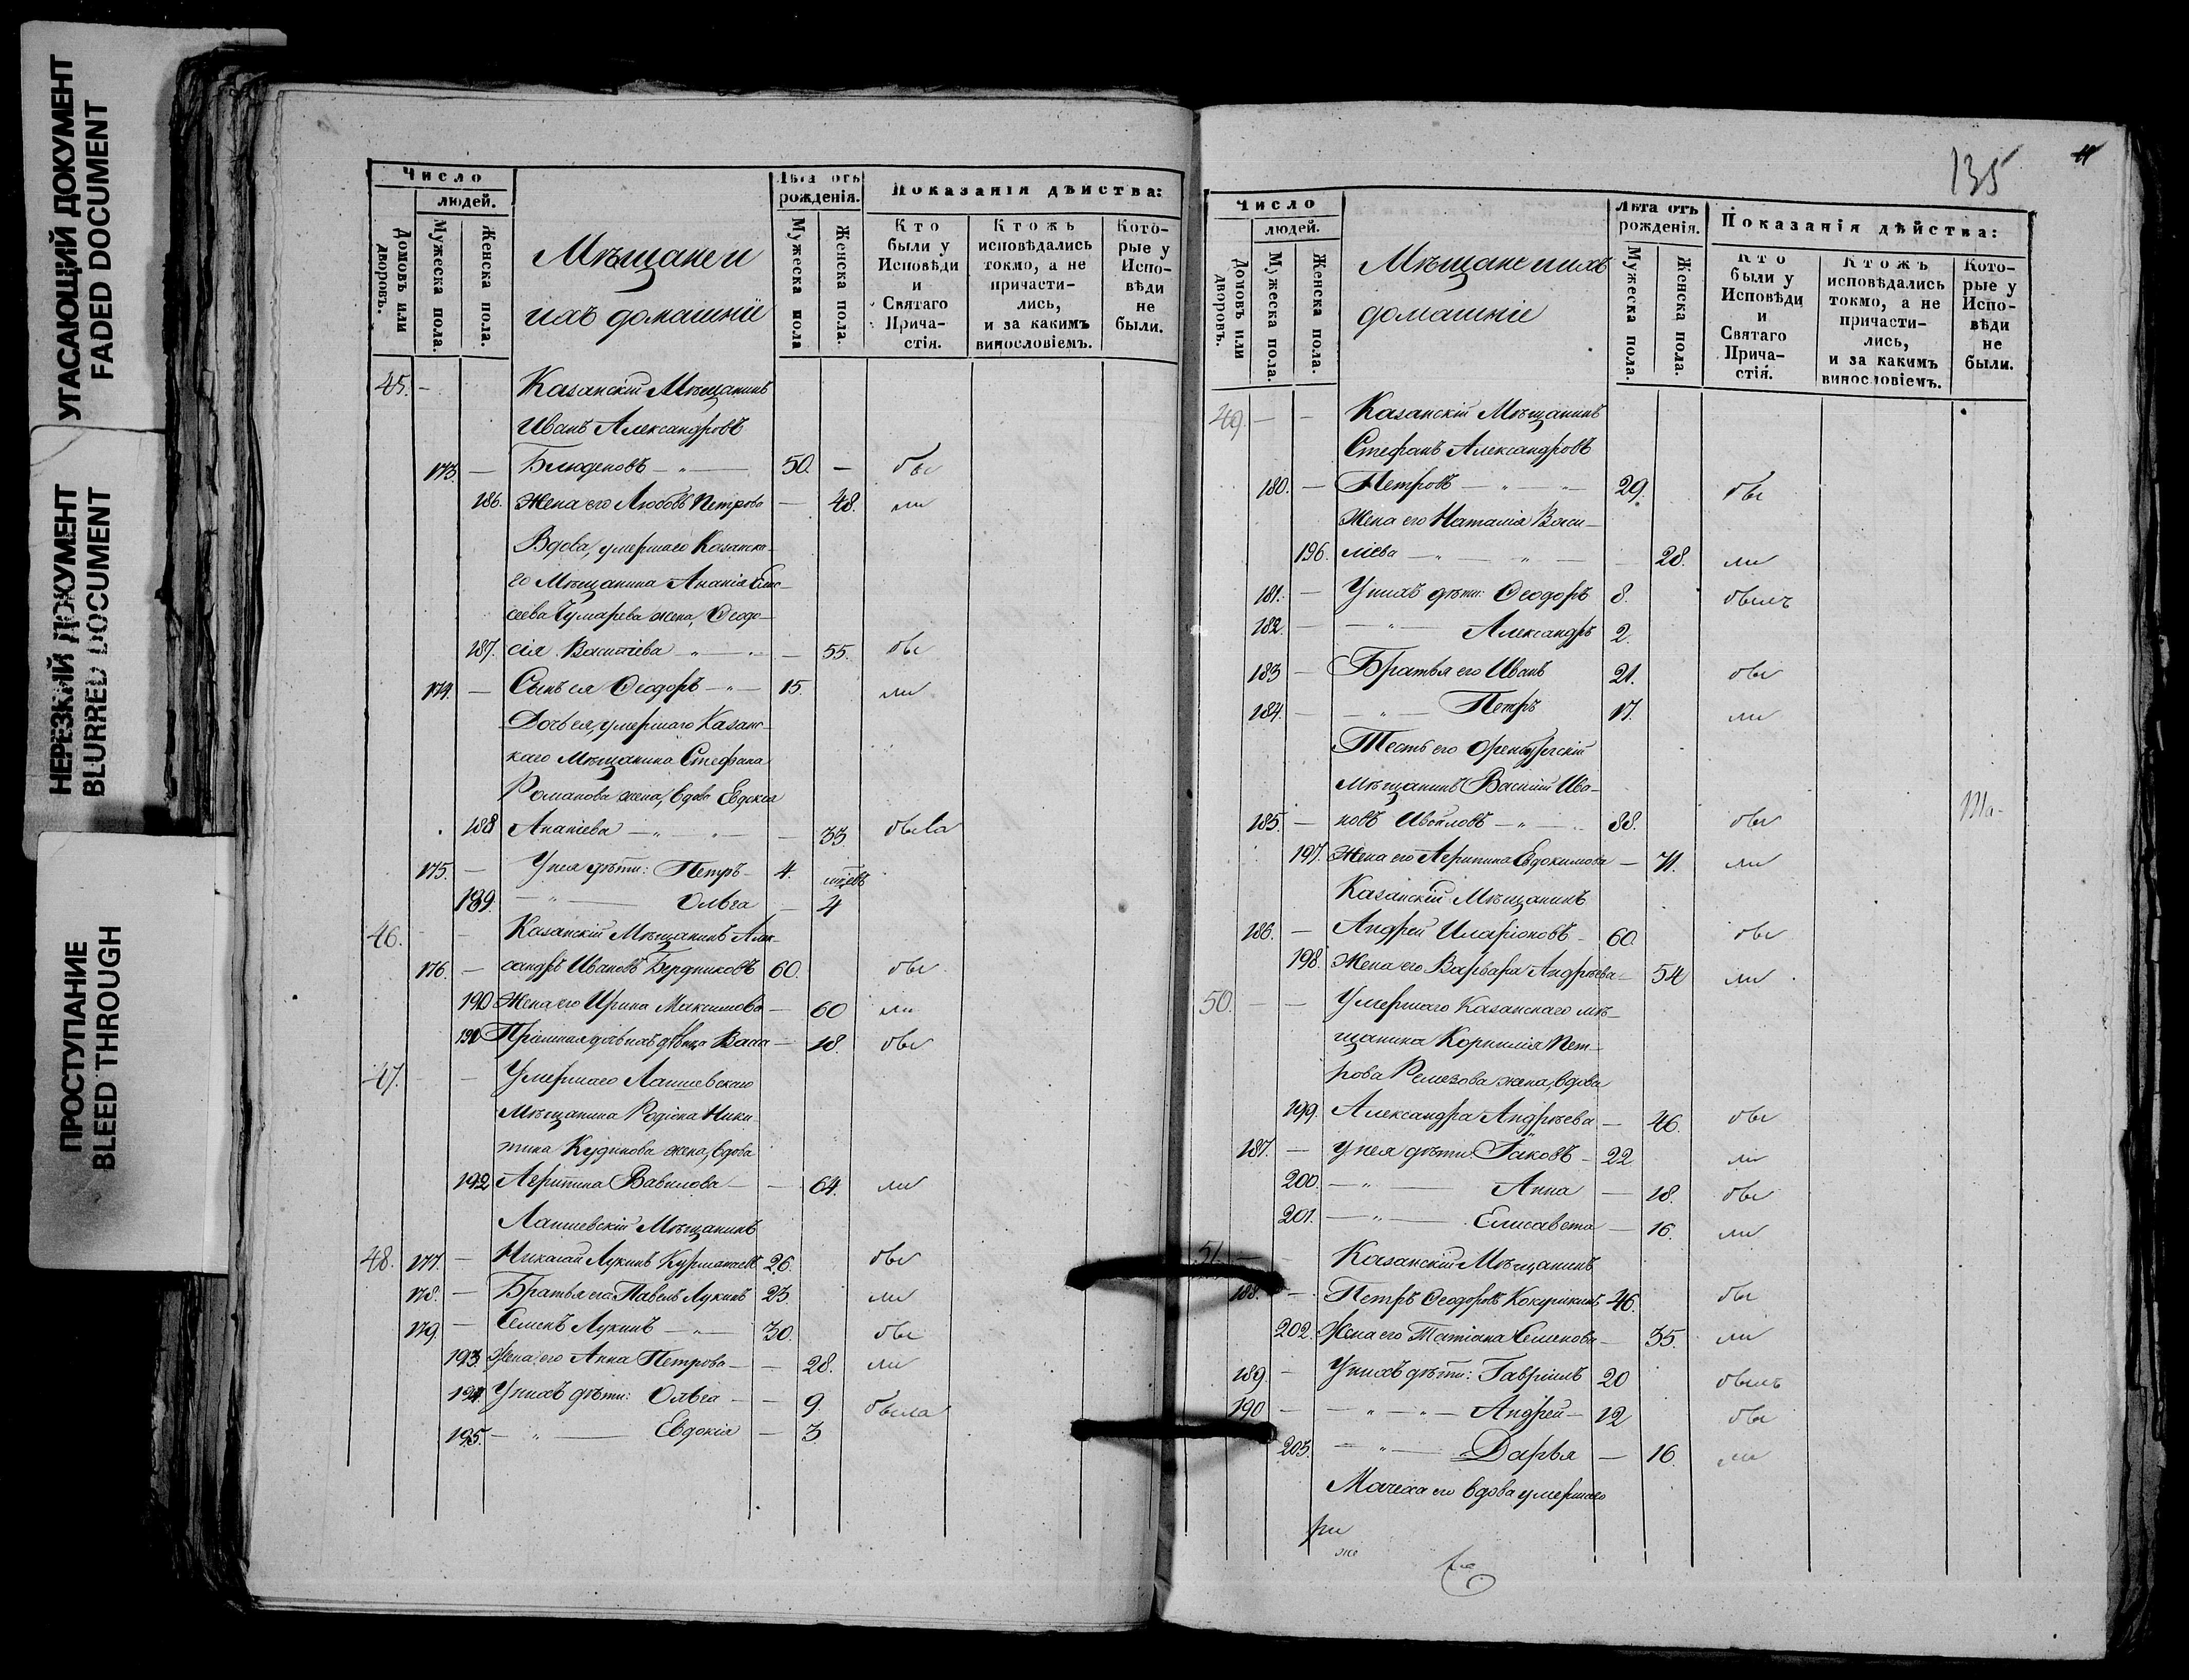 УГАСАЮЩИЙ ДОКУМЕНТ
FADED DOCUMENT
НЕРЕЗКИЙ ДОКУМЕНТ
BLURRED DOCUMENT
ПРОСТУПАНИЕ
BLEED THROUGH
Число
людей.
Домовъ или дворовъ.
Мужеска пола.
Женска пола.
Мѣщане и
ихъ домашніе
Лѣта отъ
рожденія.
Мужеска пола
Женска пола.
Показанія дѣйства:
Кто
были у
Исповѣди
и
Святаго
Прича-
стія.
Ктожъ
исповѣдались
токмо, а не
причасти-
лись,
и за какимъ
винословіемъ.
Кото-
рые у
Испо-
вѣди
не
были.
45. Казанскій Мѣщанинъ
Иванъ Александровъ
173. Блюденовъ 50.
186. Жена его Любовь Петрова 48.
Вдова, умершаго Казанска-
го Мѣщанина Ананія
Чумарева жена, Ѳеодо-
187. сія Василіева 55.
174. Сынъ ея Ѳеодоръ 15.
Дочь ея, умершаго Казанс-
каго Мѣщанина Стефана
Романова жена, вдова Евдокія
188 Ананіева 33. была
175. У нея дѣти: Петръ 4.
189. Ольга 4
46. Казанскій Мѣщанинъ Алек-
176. сандръ Ивановъ Бердниковъ 60.
190 Жена его Ирина Максимова 60
191 дѣвица Васса 18.
47. Умершаго Лаишевскаго
Мѣщанина Родіона Ники-
тина Кудинова жена, вдова
192 Агрипина Вавилова 64.
Лаишевскій Мѣщанинъ
48. 177. Николай Лукинъ 26.
178. Братья его Павелъ Лукинъ 23.
179. Семенъ Лукинъ 30.
193. Жена его Анна Петрова 28.
194. У нихъ дѣти: Ольга 9. была
195. Евдокія 3
135
Число
людей.
Домовъ или дворовъ.
Мужеска пола.
Женска пола.
Мѣщане и ихъ
домашніе
Лѣта отъ
рожденія.
Мужеска пола.
Женска пола.
Показанія дѣйства:
Кто
были у
Исповѣди
и
Святаго
Прича-
стія.
Ктожъ
исповѣдались
токмо, а не
причасти-
лись,
и за какимъ
винословіемъ.
Кото-
рые у
Испо-
вѣди
не
были.
49. Казанскій Мѣщанинъ
Стефанъ Александровъ
180. Петровъ 29.
Жена его Наталія Васи-
196. ліева 28.
181. У нихъ дѣти: Ѳеодоръ 8.
182. Александръ 2.
183 Братья его Иванъ 21.
184. Петръ 17.
Тесть его Оренбургскій
Мѣщанинъ Василій Ива-
185. новъ 88.
197. Жена его Агрипина Евдокимова 71.
Казанскій Мѣщанинъ
186. Андрей Иларіоновъ 60.
198. Жена его Варвара Андреева 54
50. Умершаго Казанскаго мѣ-
щанина Корнилія Пет-
рова Ремезова жена, вдова
199. Александра Андреева 46.
187. У нея дѣти: Іаковъ 22
200. Анна 18.
201. Елисавета 16.
51. Казанскій Мѣщанинъ
188. Петръ Ѳеодоровъ Кокушкинъ 46.
202. Жена его Татіана Семенова 35.
189. У нихъ дѣти: Гавріилъ 20
190 Андрей 12
203. Дарья 16.
Мачеха его вдова умершаго